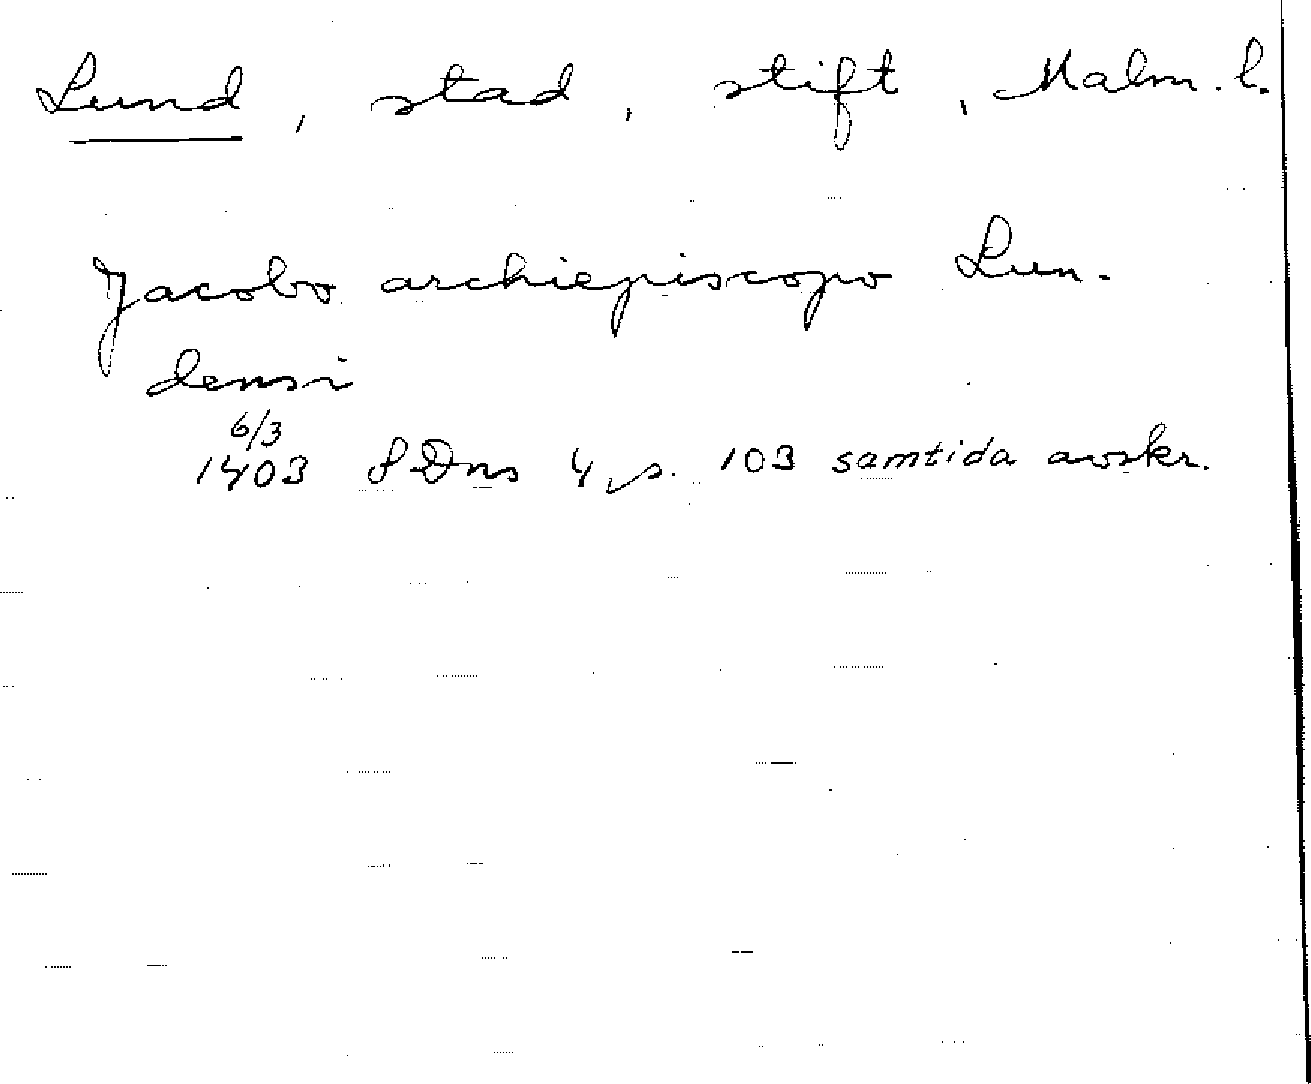 Lund, stad, stift, Malm. l.
Jacobo archiepiscopo Lun-
densi
6/3
1403 SDns 4, s. 103 samtida avskr.